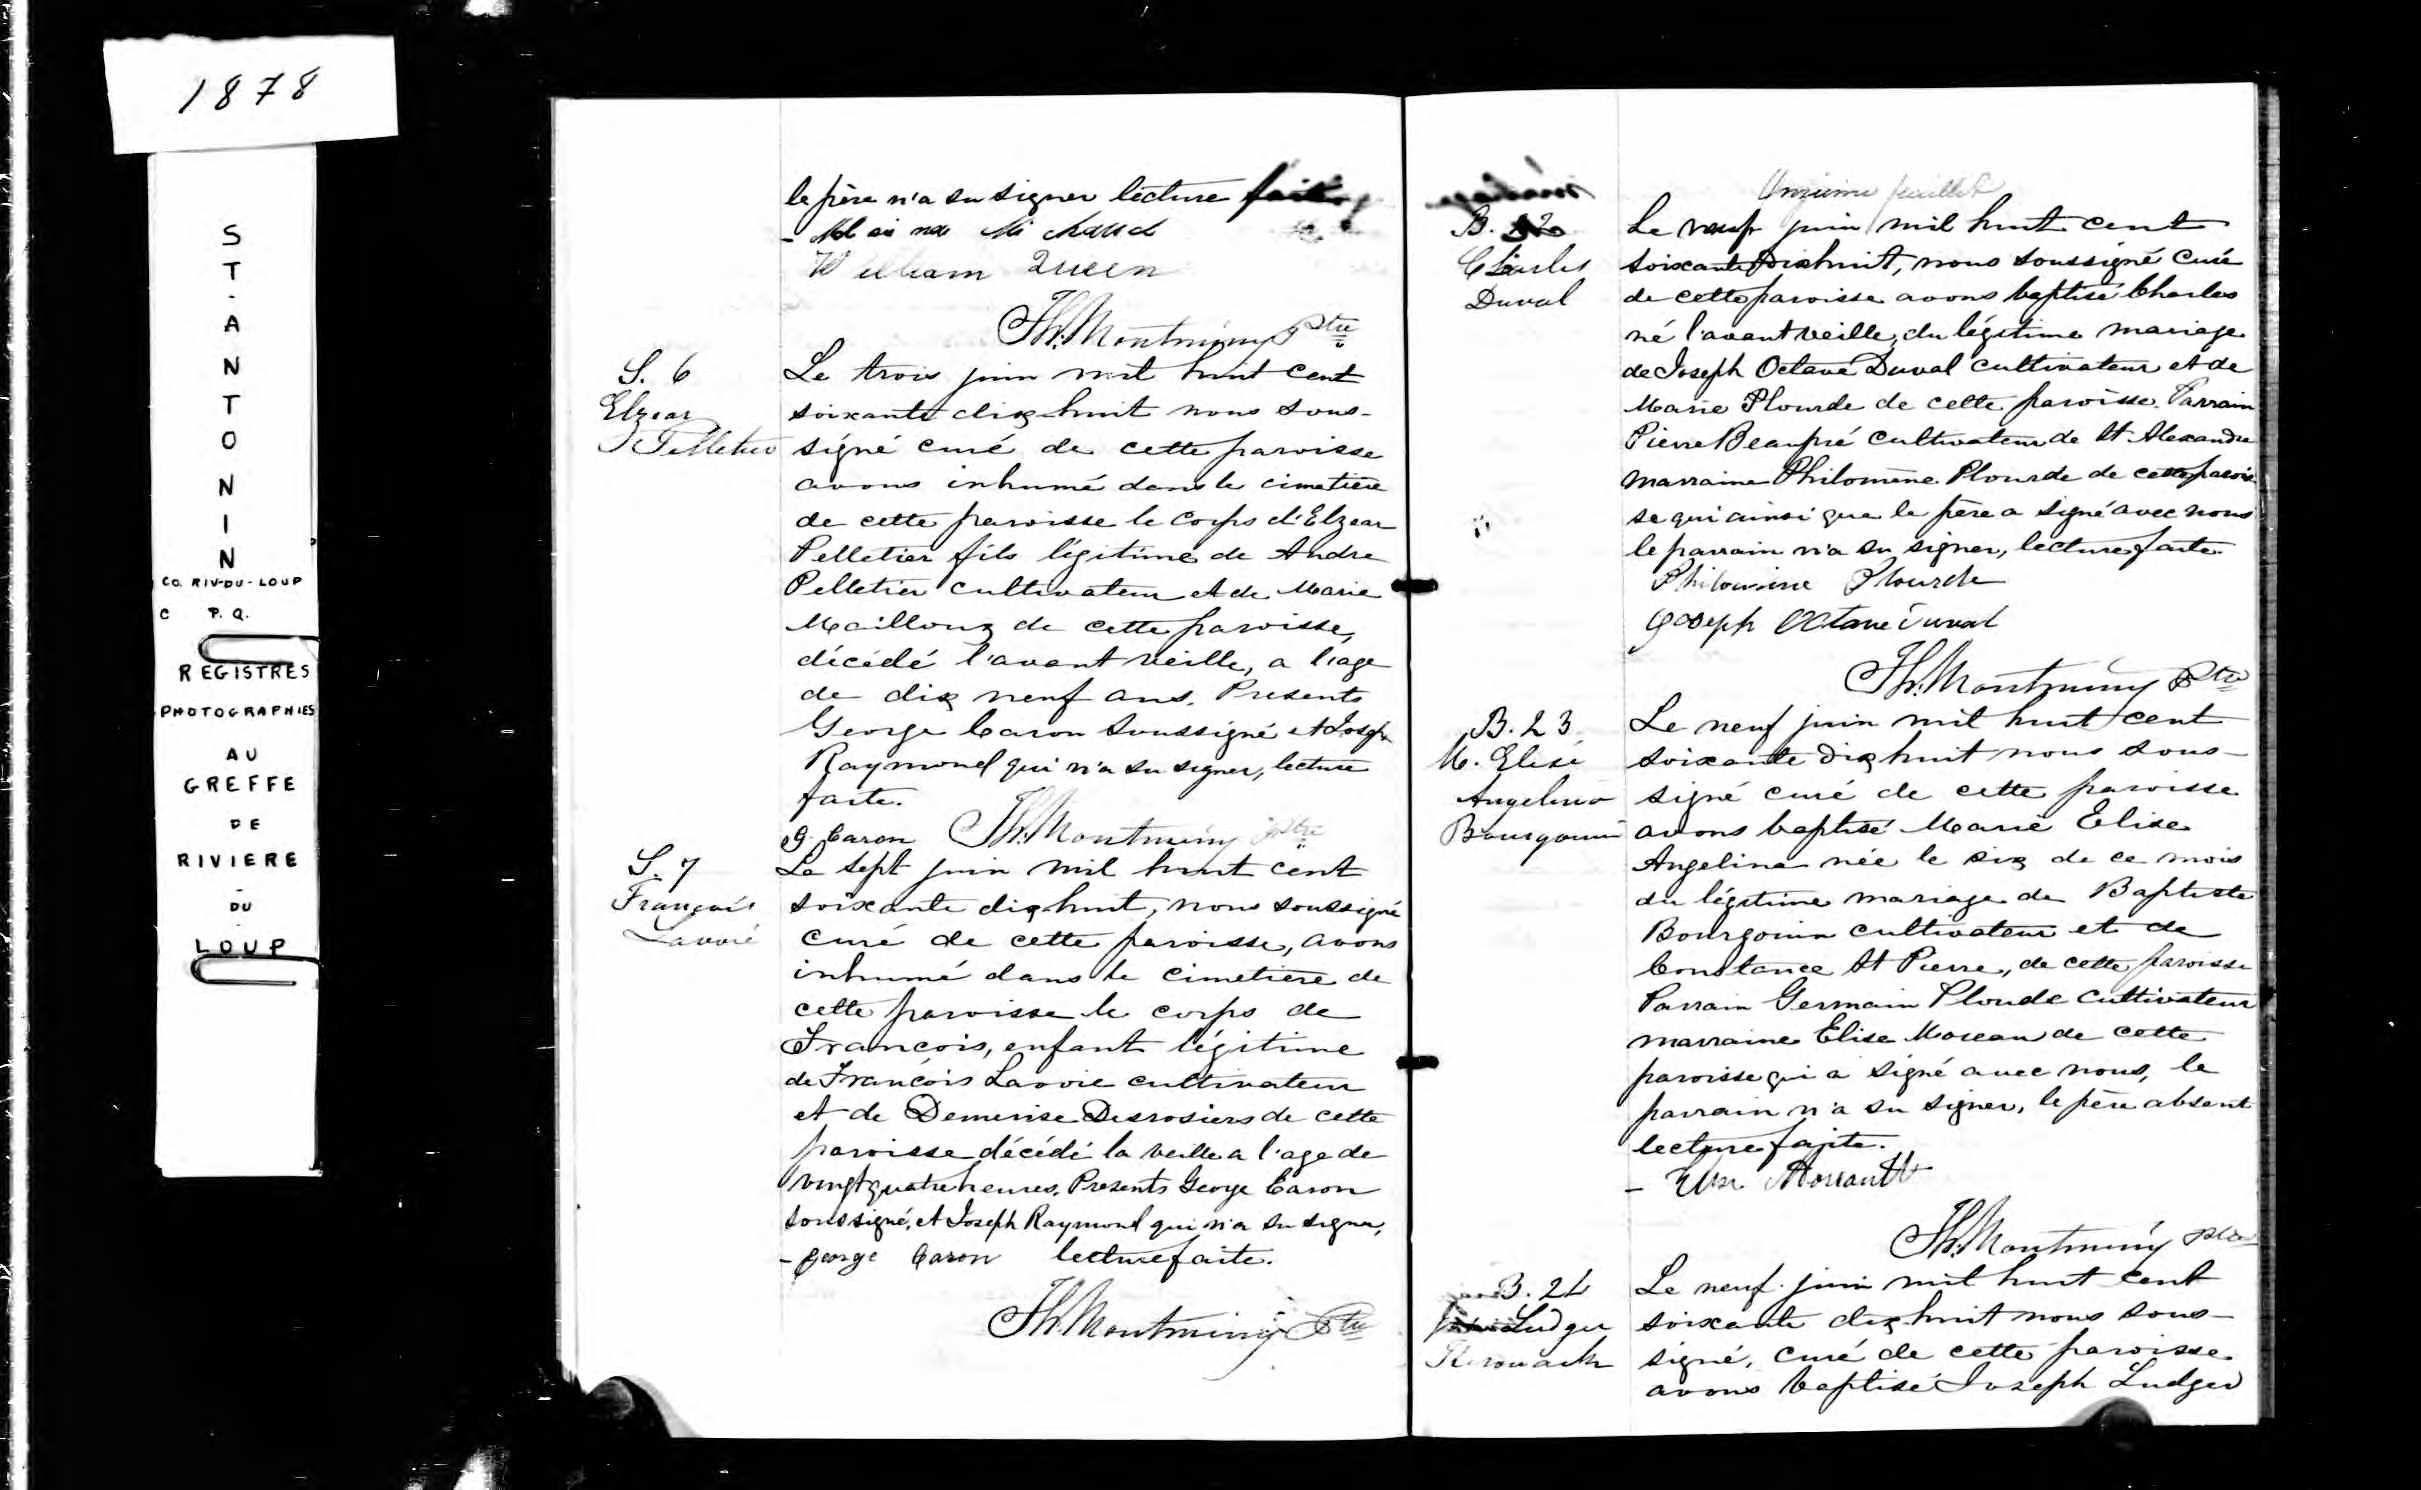 1878
ST-ANTONIN
CO. RIV-DU-LOUP
C P.Q.
REGISTRES
PHOTOGRAPHIES
AU
GREFFE
DE
RIVIERE
-
DU
-
LOUP
le père n'a su signer lecture faite
William Queen
Th. Montminy Ptre
S. 6
Elzear
Pelletier
Le trois juin mil huit cent
soixante dix-huit nous sous-
signé curé de cette paroisse
avons inhumé dans le cimetière
de cette paroisse le corps d'Elzear
Pelletier fils légitime de Andre
Pelletier cultivateur et de Marie
Mailloux de cette paroisse,
décédé l'avant veille, a l'age
de dix neuf ans. Presents
George Caron soussigné et Joseph
Raymond qui n'a su signer, lecture
faite.
G. Caron Th. Montminy Ptre
S. 7
François
Lavoié
Le sept juin mil huit cent
soixante dix huit, nous soussigné
curé de cette paroisse, avons
inhumé dans le cimetière de
cette paroisse le corps de
François, enfant légitime
de François Lavoie cultivateur
et de Demerise Desrosiers de cette
paroisse décédé la veille a l'age de
vingt quatre heures. Presents George Caron
soussigné, et Joseph Raymond qui n'a su signer,
- George Caron lecture faite.
Th. Montminy Ptre
Onzième feuillet
B.
Charles
Duval
Le neuf juin mil huit cent
soixante dix huit, nous soussigné curé
de cette paroisse avons baptisé Charles
né l'avant veille, du légitime mariage
de Joseph Octave Duval cultivateur et de
Marie Plourde de cette paroisse. Parrain
Pierre Beaupré cultivateur de St Alexandre
marraine Philomène Plourde de cette parois
se qui ainsi que le père a signé avec nous
le parrain n'a su signer, lecture faite.
Philomine Plourde
Joseph Octave Duval
Th. Montminy Ptre
B. 23
M. Elise
Angelina
Bourgouin
Le neuf juin mil huit cent
soixante dix huit nous sous-
signé curé de cette paroisse
avons baptisé Marie Elise
Angelina née le six de ce mois
du légitime mariage de Baptiste
Bourgouin cultivateur et de
Constance St Pierre, de cette paroisse
Parrain Germain Ploude cultivateur
marraine Elise Moreau de cette
paroisse qui a signé avec nous, le
parrain n'a su signer, le père absent
lecture faite.
Th. Montminy Ptre
B. 24
Ludger
Le neuf juin mil huit cent
soixante dix-huit nous sous-
signé, curé de cette paroisse
avons baptisé Joseph Ludger